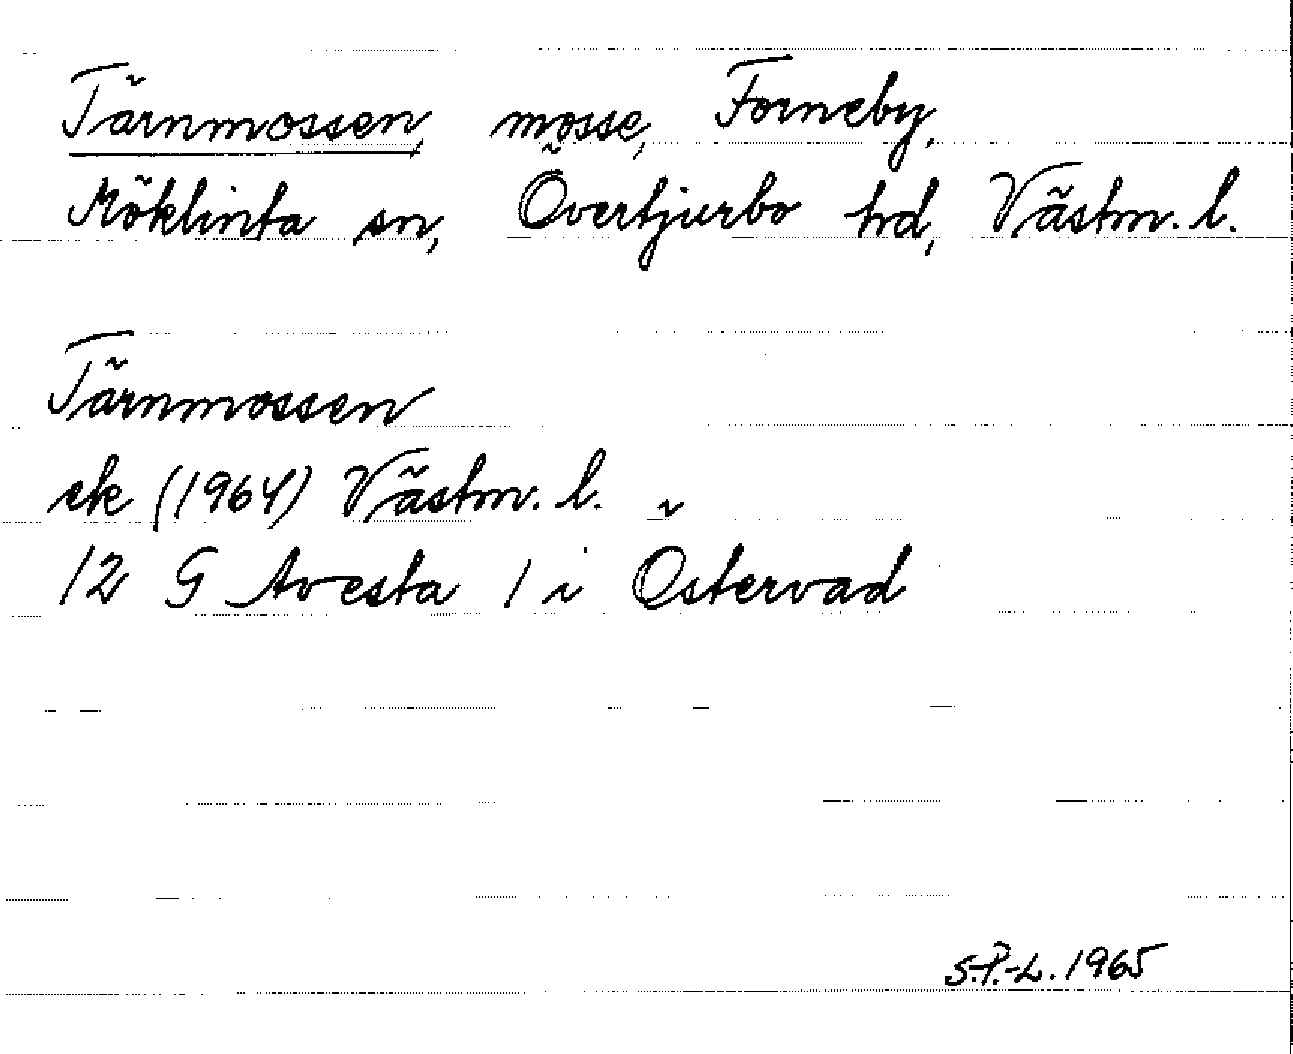 Tärnmossen, mosse, Forneby,
Möklinta sn, Övertjurbo hd, Västm. l.
Tärnmossen
ek (1964) Västm. l.
12 G Avesta 1 i Östervad
S.P.-L. 1965